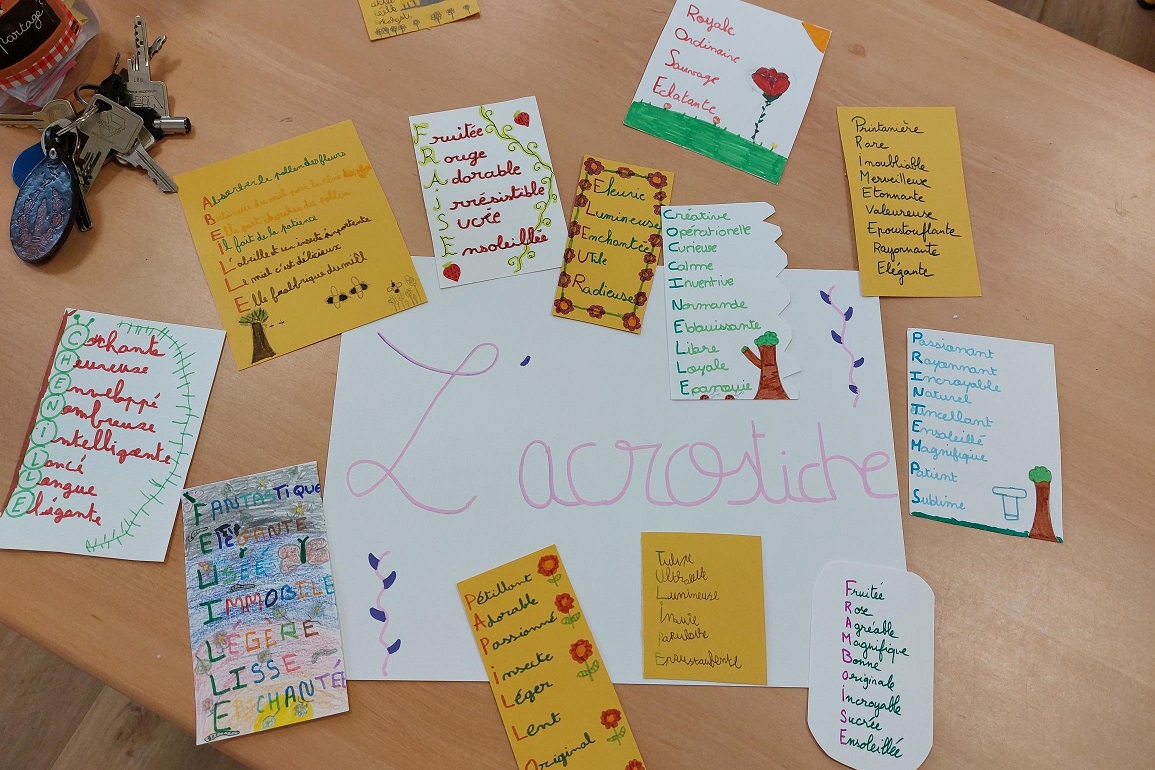 Partagé
Royale
Ordinaire
Sauvage
Eclatante
Fruitée
Rouge
Adorable
Irrésistible
Sucrée
Ensoleillée
Absorber le pollen des fleurs
Il faut de la patience
L'abeille est un insecte importante
Le miel c'est délicieux
Elle faabbrique du mill
Fleurie
Lumineuse
Enchantée
Utile
Radieuse
Créative
Opérationelle
Curieuse
Calme
Inventive
Normande
Eblouissante
Libre
Loyale
Epanouie
Printanière
Rare
Inoubliable
Merveilleuse
Etonnante
Valeureuse
Epoustouflante
Rayonnante
Elégante
Cochante
Heureuse
Enveloppé
Nombreuse
Intelligente
Lancé
Longue
Elégante
L'acrostiche
Passionant
Rayonnant
Incroyable
Naturel
Tincellant
Ensoleillé
Magnifique
Patient
Sublime
FANTASTIQUE
ELEGANTE
USÉE
IMMOBILE
LÉGÈRE
LISSE
ECHANTÉE
Pétillant
Adorable
Passionné
insecte
Léger
Lent
Original
Lumineuse
Fruitée
Rose
Agréable
Magnifique
Bonne
Originale
Incroyable
Sucrée
Ensoleillée